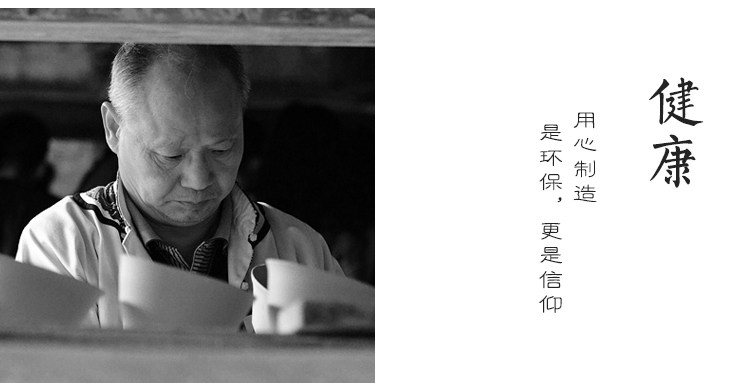 健康
用心制造
是环保，更是信仰